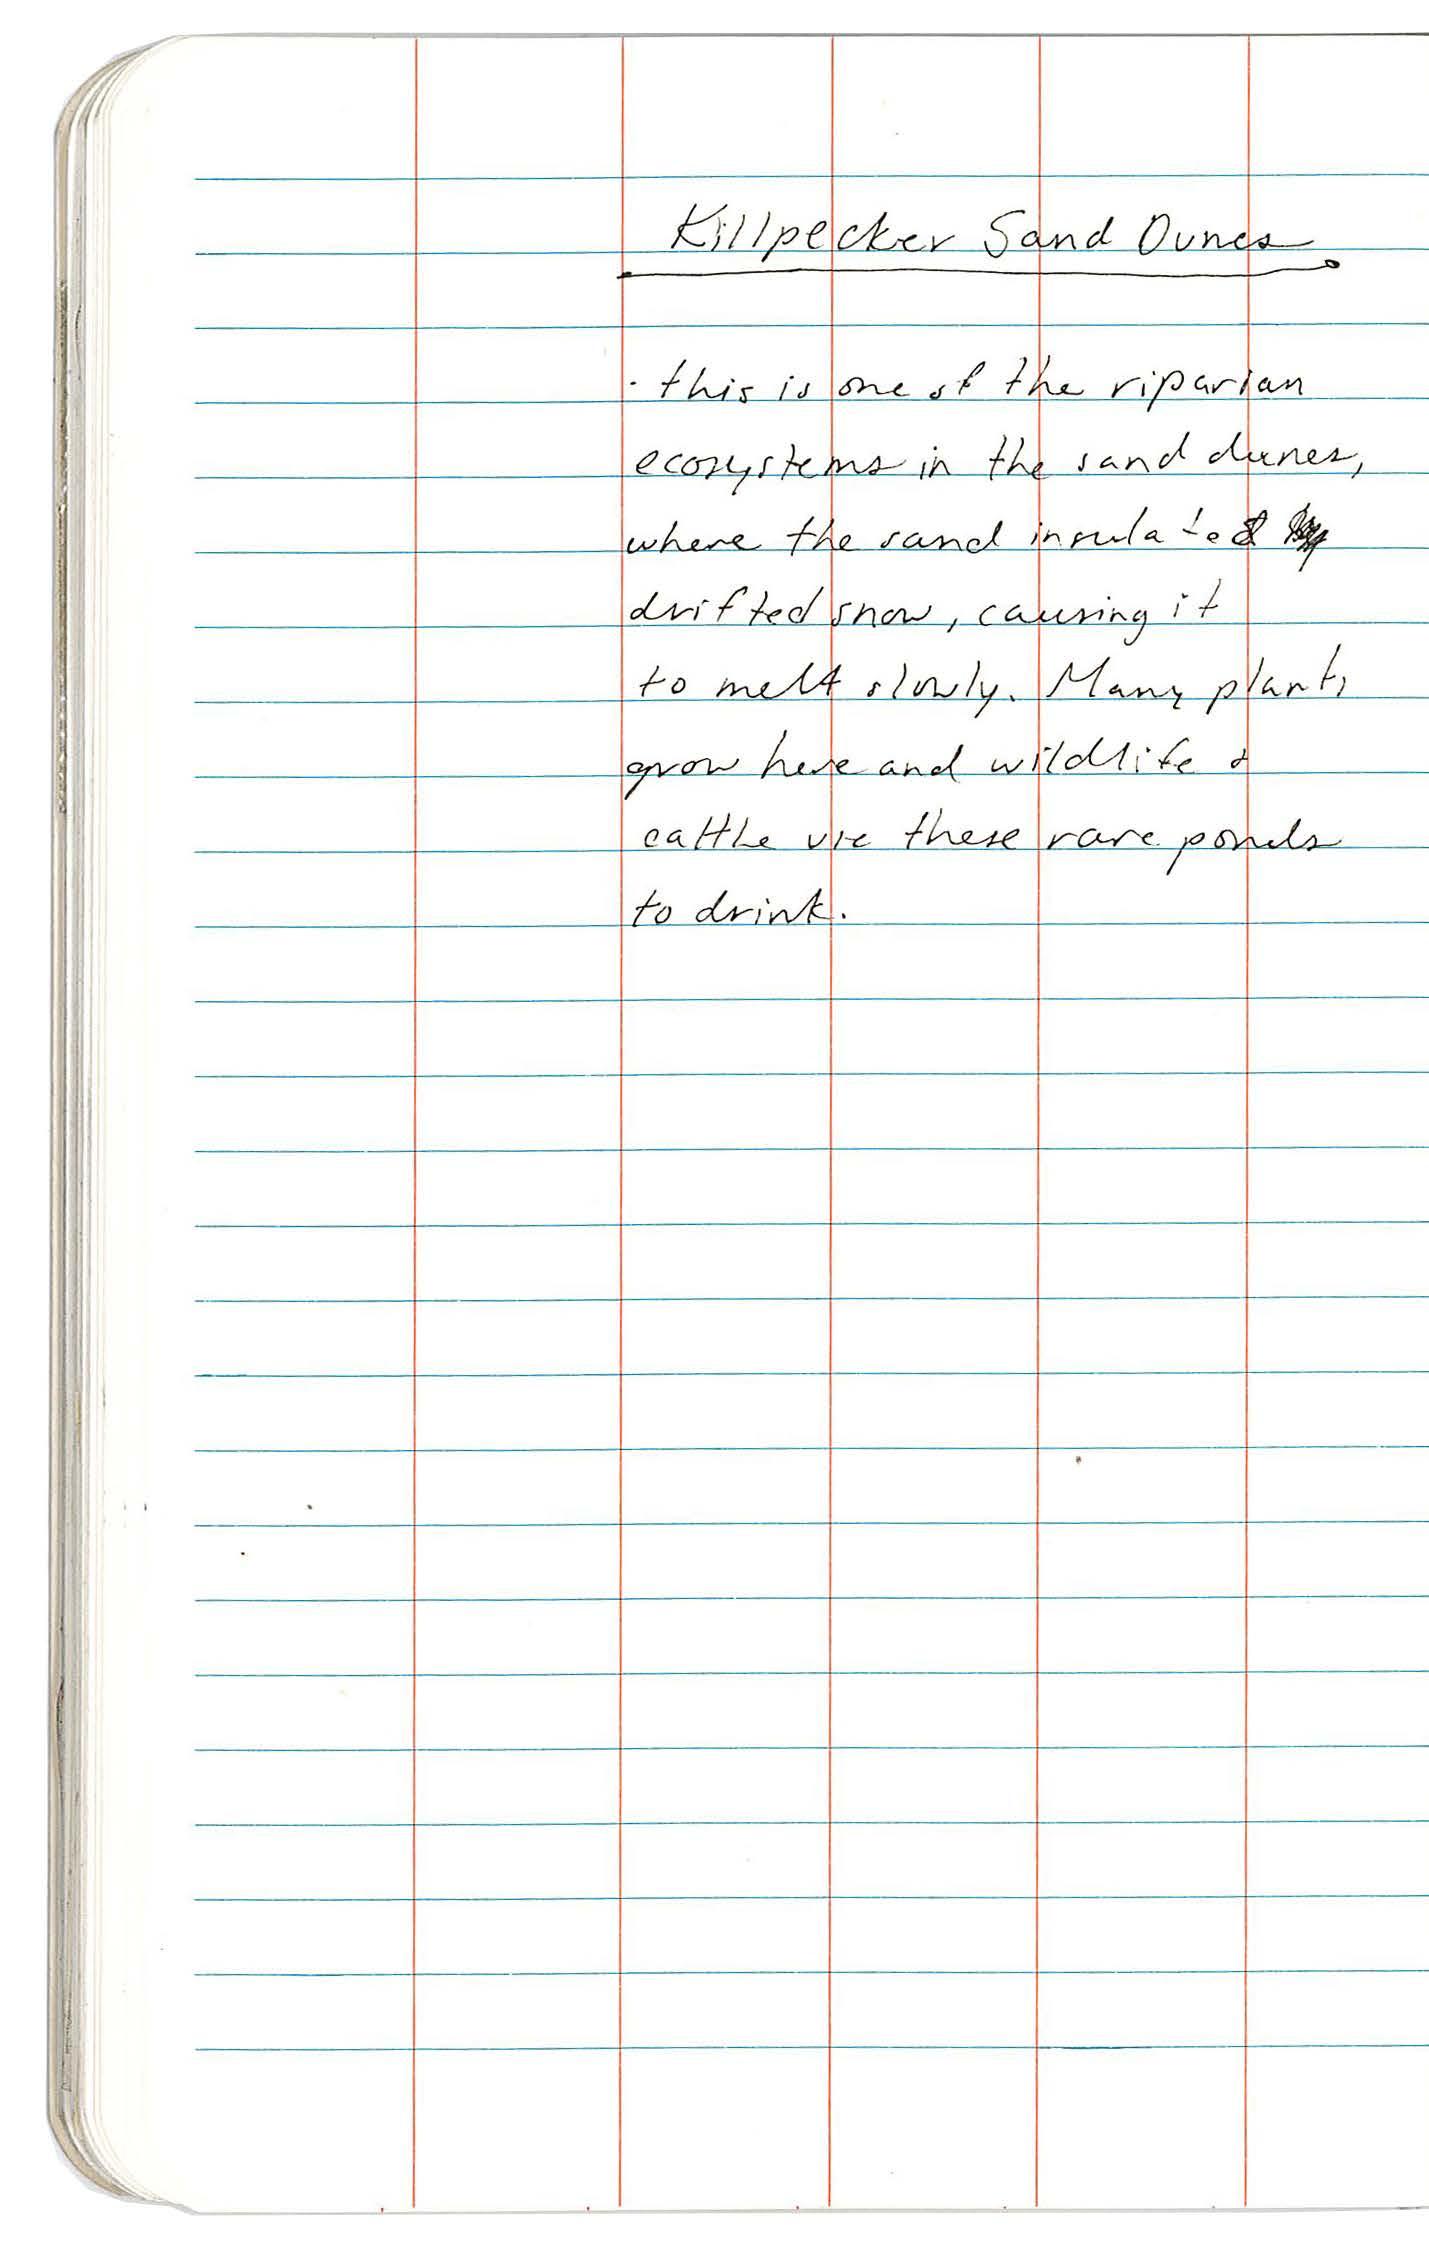 Killpecker Sand Dunes
· this is one of the riparian
ecosystems in the sand dunes,
where the sand insulates
drifted snow, causing it
to melt slowly. Many plants
grow here and wildlife &
cattle use these rare ponds
to drink.